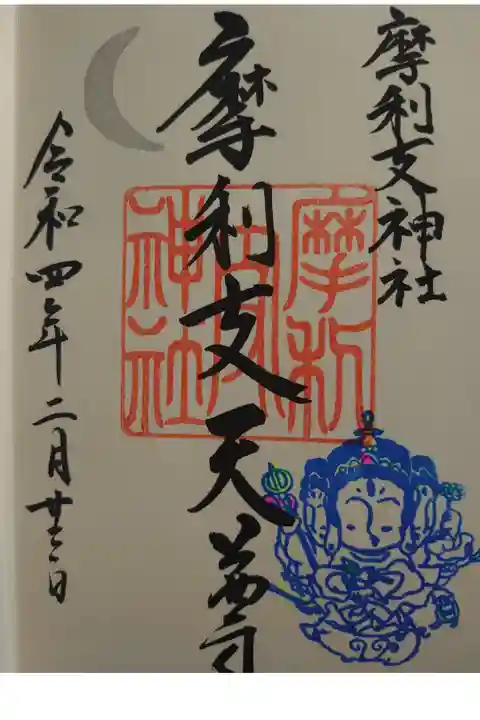 摩利支神社
摩利支天尊
令和四年二月廿二日
摩利
神社